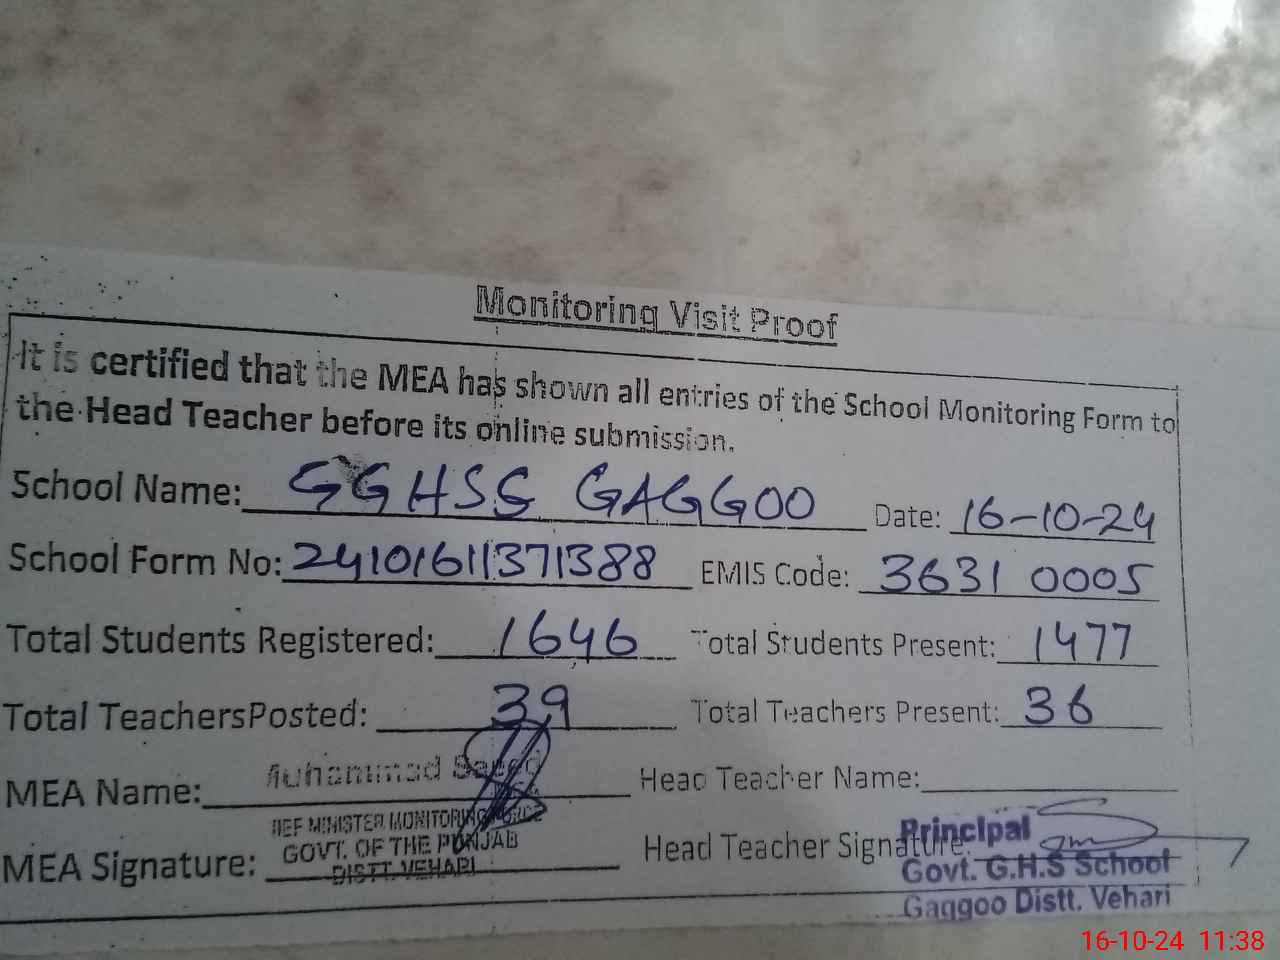 Monitoring Visit Proof
It is certified that the MEA has shown all entries of the School Monitoring Form to
the Head Teacher before its online submission.
School Name: GGHSS GAGGOO Date: 16-10-24
School Form No: 24101611371388 EMIS Code: 3631 0005
Total Students Registered: 1646 Total Students Present: 1477
Total TeachersPosted: 39 Total Teachers Present: 36
MEA Name: Muhammad Saeed Head Teacher Name:
MINISTER MONITORING FORCE
GOVT. OF THE PUNJAB
DISTT. VEHARI
MEA Signature: Head Teacher Signature:
Principal
Govt. G.H.S School
Gaggoo Distt. Vehari
16-10-24 11:38